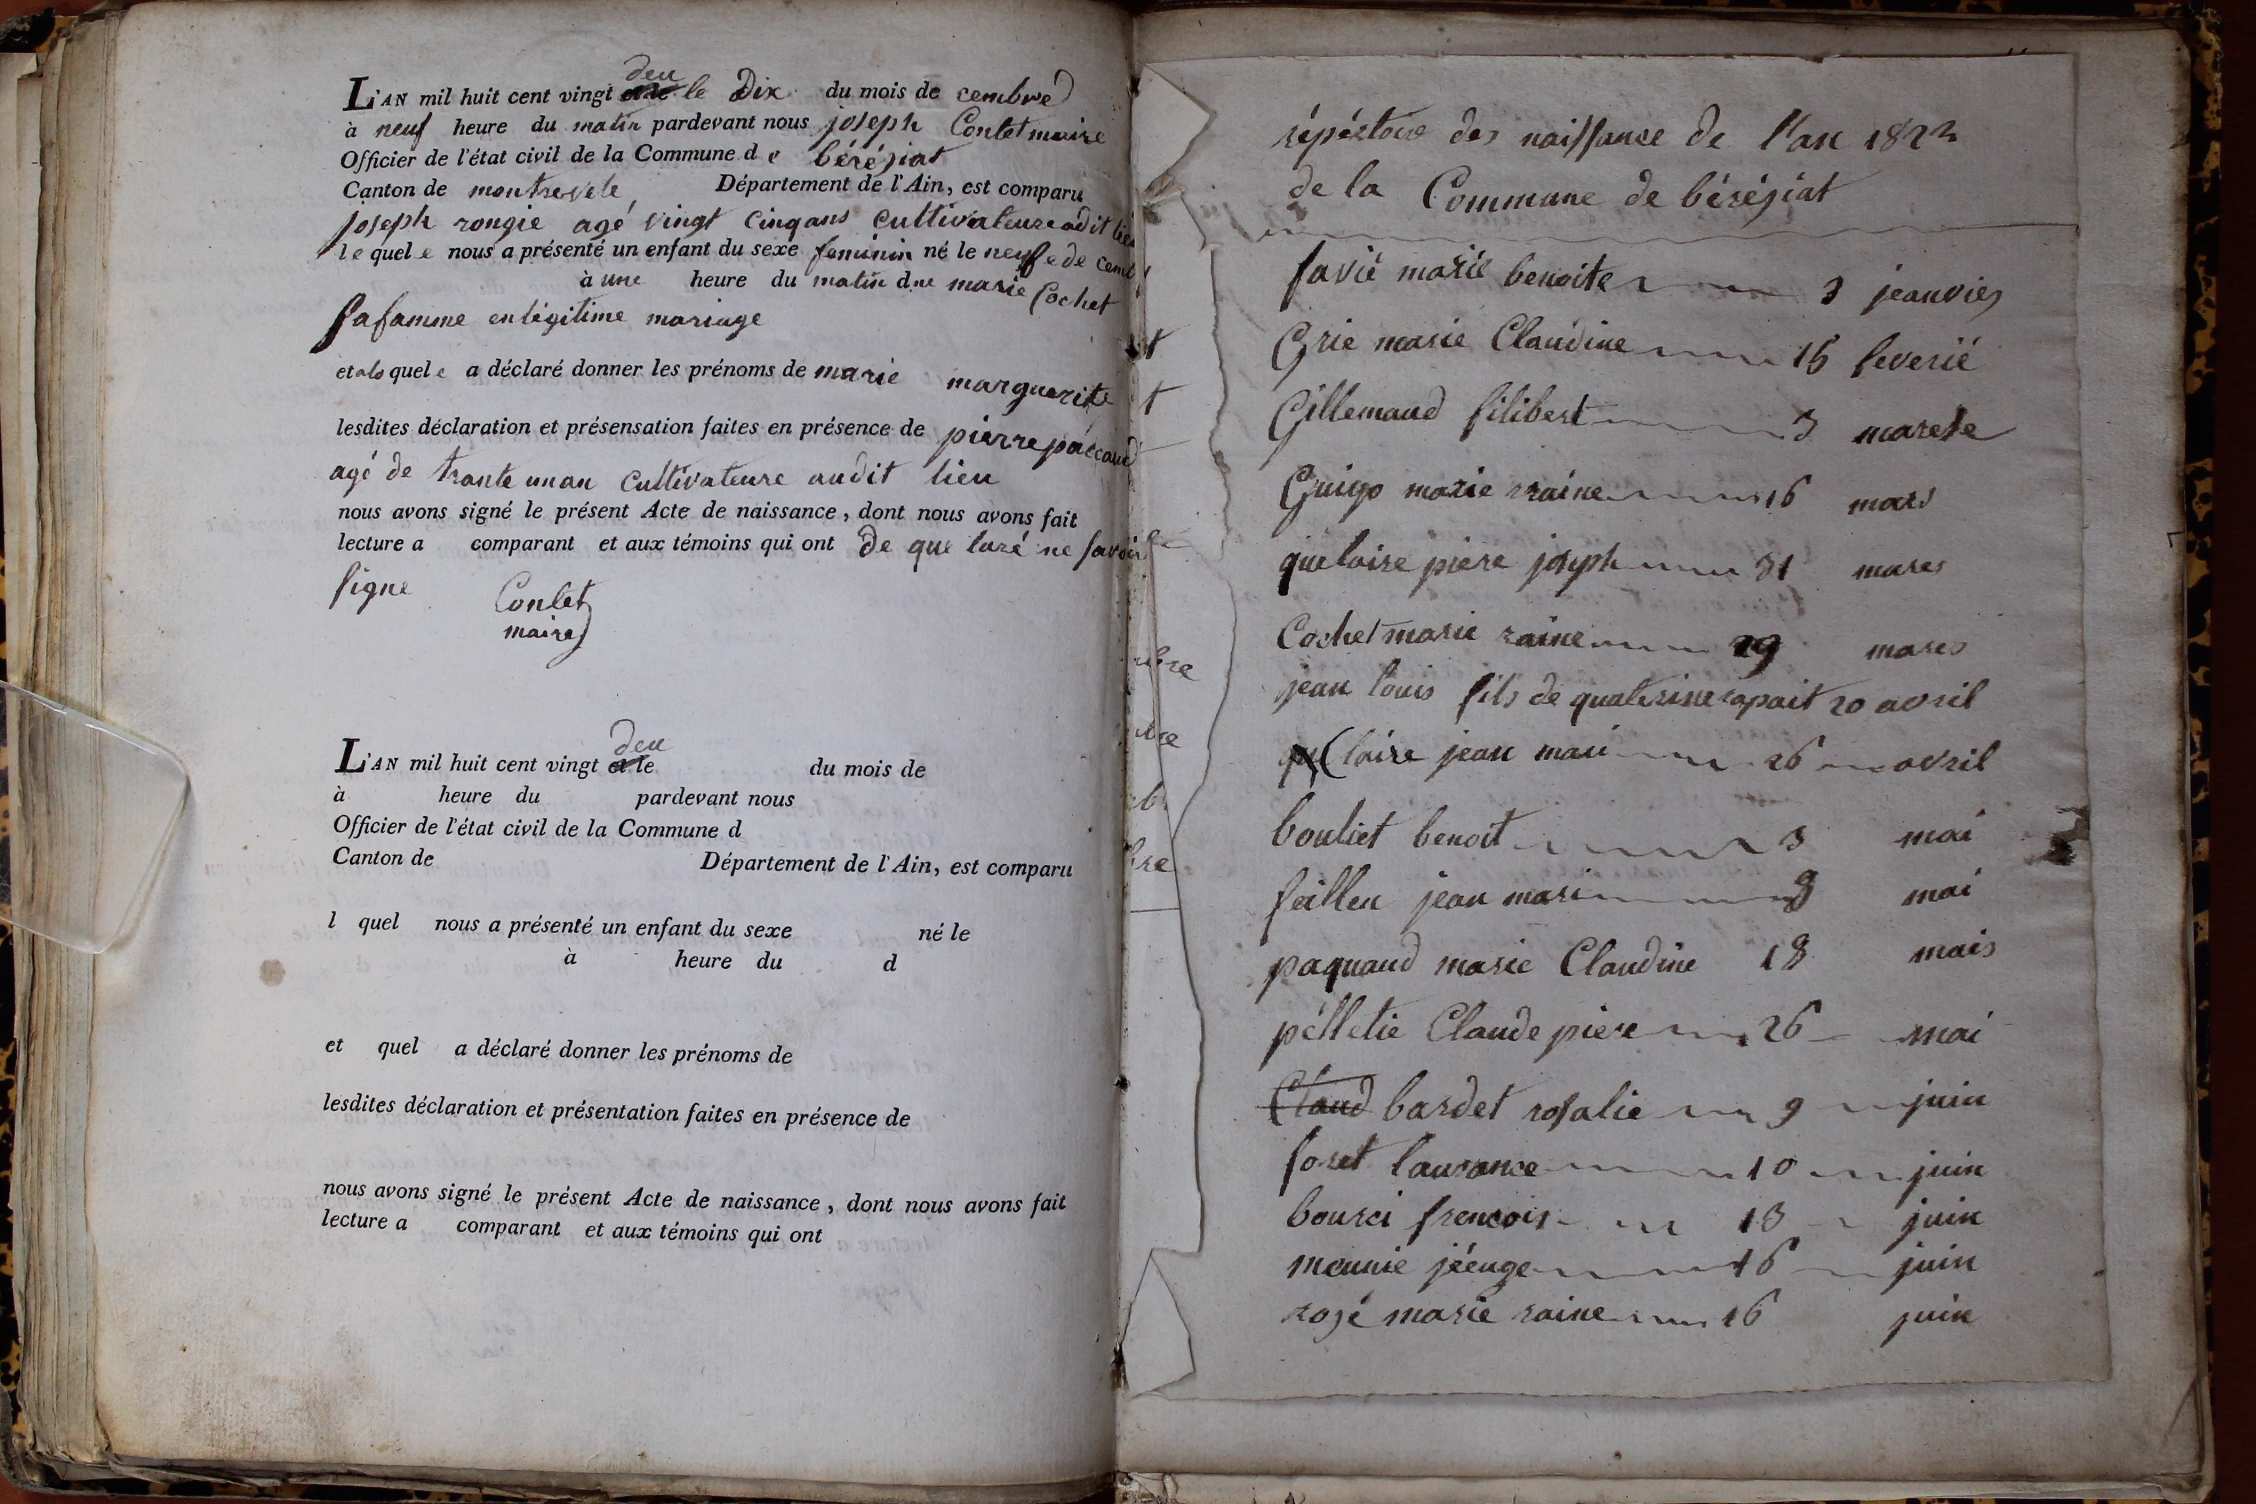 deu
L'AN mil huit cent vingt une le Dix du mois de cembre
à neuf heure du matin pardevant nous joseph Contet maire
Officier de l'état civil de la Commune d e béréziat
Canton de montrevele Département de l'Ain, est comparu
joseph rongie agé vingt cinqans cultivateure audit lieu
le quel e nous a présenté un enfant du sexe feminin né le neuf de cemb
à une heure du matin d ne marie Cochet
safamme enlégitime mariage
et alo quel e a déclaré donner les prénoms de marie marguerite
lesdites déclaration et présensation faites en présence de pierre paccaud
agé de trante unan cultivateure audit lieu
nous avons signé le présent Acte de naissance, dont nous avons fait
lecture a comparant et aux témoins qui ont de que laré ne savoir
signe
Contet
maire
deu
L'AN mil huit cent vingt le du mois de
à heure du pardevant nous
Officier de l'état civil de la Commune d
Canton de Département de l'Ain, est comparu
l quel nous a présenté un enfant du sexe né le
à heure du d
et quel a déclaré donner les prénoms de
lesdites déclaration et présentation faites en présence de
nous avons signé le présent Acte de naissance, dont nous avons fait
lecture a comparant et aux témoins qui ont
répértoire des naissance de l'an 1822
de la Commune de béréziat
favié marie benoite 3 jeanvier
Grie marie Claudine 15 feverié
Gillemaud filibert 3 marele
Guigo marie raine 16 mars
quelaire piere joseph 31 mares
Cochet marie raine 29 mares
jean louis fils de quaterine rapait 20 avril
Claire jean mari 26 avril
bouliet benoit 3 mai
feilleu jean mari 9 mai
paquaud marie Claudine 18 mais
pélletie Claude piere 26 mai
Claud bardet rosalie 9 juin
foret laurance 10 juin
bourci francois 13 juin
meunie jéenge 16 juin
rozé marie raine 16 juin